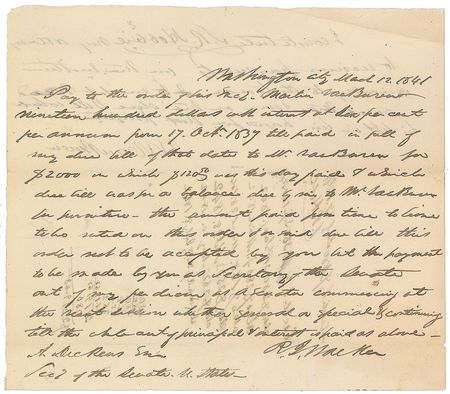 Washington City March 12. 1841
Pay to the order of his Excy. Martin Van Buren
nineteen hundred dollars with interest at six per cent
per annum from 17. Octr. 1837 till paid in full of
my due bill of that date to Mr. Van Buren for
$2000 on which was this day paid & which
due bill was for a balance due by me to Mr. Van Buren
for furniture - the amount paid from time to time
to be noted on this order & on said due bill this
order not to be accepted by you but the payment
to be made by you as Secretary of the Senate
out of my per diem as a Senator commencing at
the next session whether general or special & continuing
till the whole amt of principal & interest is paid as above -
A. Dickens Esqr R. J. Walker
Secy of the Senate U. States -